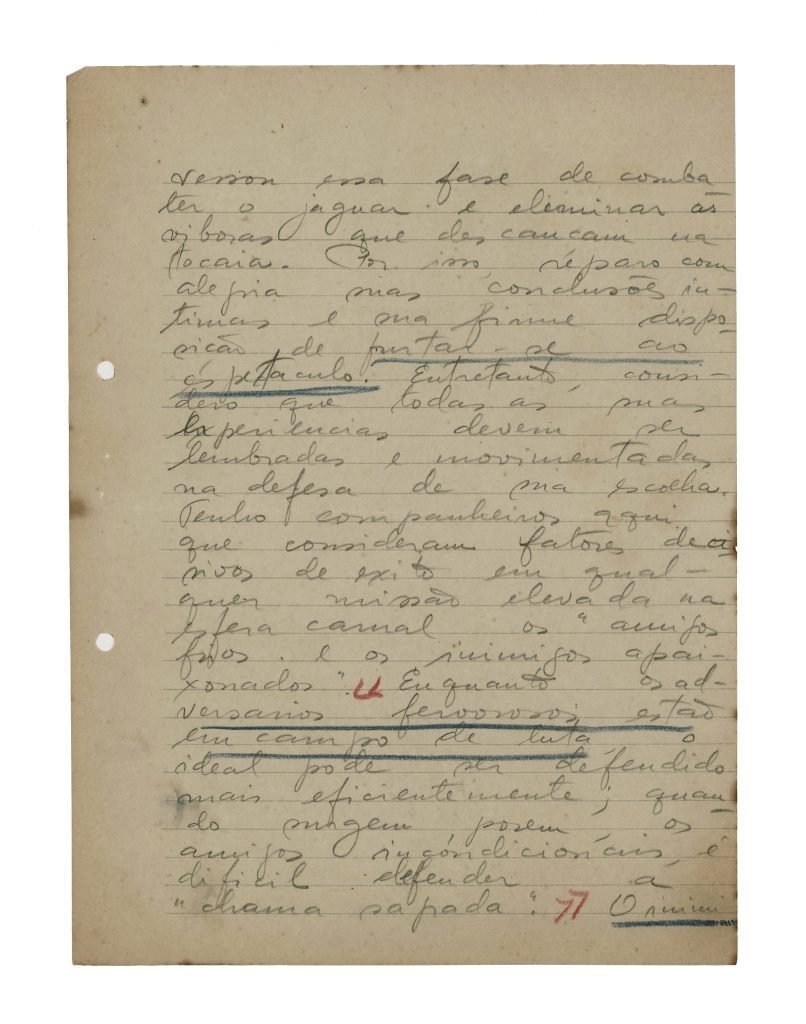 versou essa fase de comba
ter o jaguar e eliminar as
viboras que descancam na
tocaia. Por isso, réparo com
alegria suas conclusões in-
timas e sua firme dispo-
sição de furtar-se ao
éspetaculo. Entretanto, consi-
dero que todas as suas
Experiencias devem ser
lembradas e movimentadas
na defesa de sua escolha.
Tenho companheiros aqui
que consideram fatores deci
sivos de exito em qual-
quer missão elevada na
esfera carnal os "amigos
frios e os inimigos apai-
xonados". « Enquanto os ad-
versarios fervorosos estão
em campo de luta, o
ideal pode ser defendido
mais eficientemente; quan
do surgem porem, os
amigos incondicionais, é
dificil defender a
"chama sagrada". » O inimi